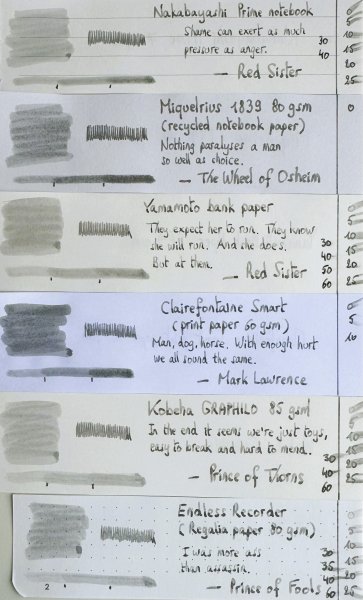 Nakabayashi Prime notebook
Shame can exert as much
pressure as anger.
— Red Sister
0
5
10
15
20
25
30
40
Miquelrius 1839 80 gsm
(recycled notebook paper)
Nothing paralyses a man
so well as choice.
— The Wheel of Osheim
0
Yamamoto bank paper
They expect her to run. They know
she will run. And she does.
But at them.
— Red Sister
0
5
10
15
20
25
30
40
50
60
Clairefontaine Smart
(print paper 60 gsm)
Man, dog, horse. With enough hurt
we all sound the same.
— Mark Lawrence
0
5
10
Kobeha GRAPHILO 85 gsm
In the end it seems we're just toys,
easy to break and hard to mend.
— Prince of Thorns
0
5
10
15
20
25
30
40
60
Endless Recorder
(Regalia paper 80 gsm)
I was more ass
than assassin.
— Prince of Fools
2
0
5
10
15
20
25
30
35
40
50